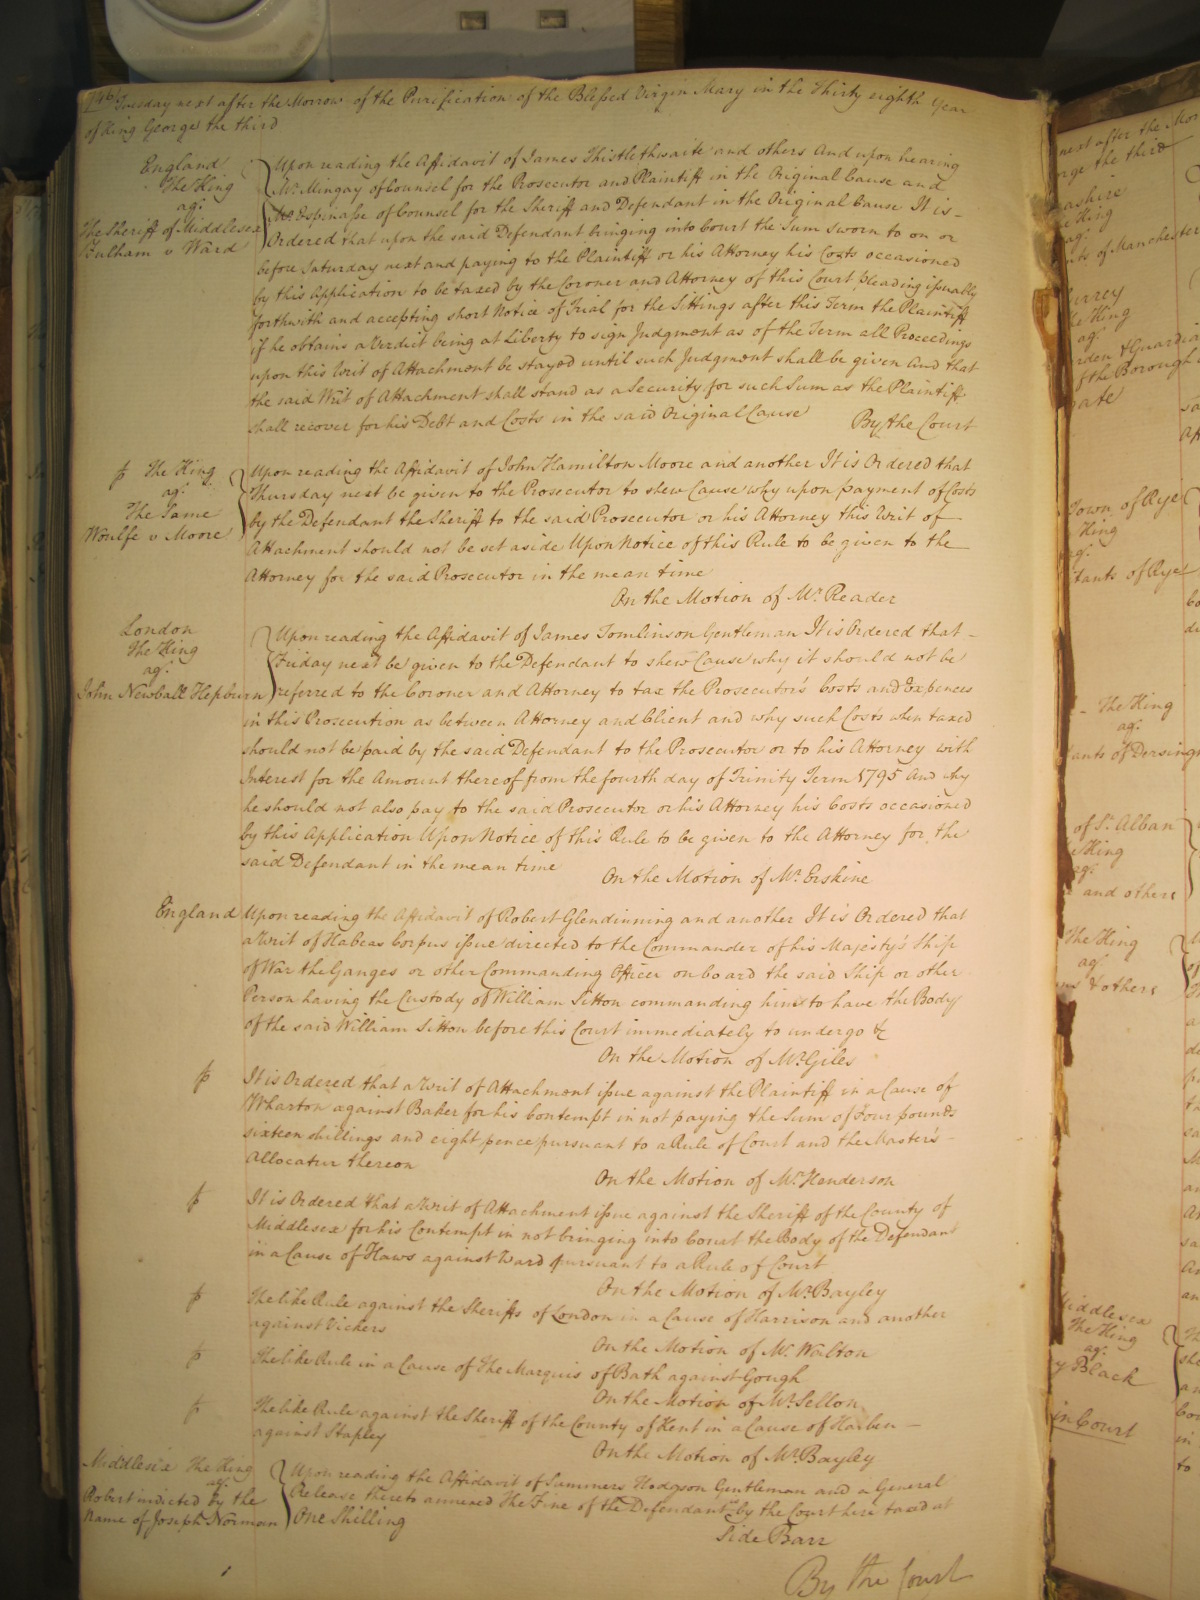 Tuesday next after the Morrow of the Purification of the Blessed Virgin Mary in the Thirty eighth Year
of King George the third
England
The King
agt.
The Sheriff of Middlesex
Fulham v Ward
Upon reading the Affidavit of James Thistlethwaite and others And upon hearing
Mr. Mingay of Counsel for the Prosecutor and Plaintiff in the Original Cause and
Mr. Espinasse of Counsel for the Sheriff and Defendant in the Original Cause It is
Ordered that upon the said Defendant bringing into Court the Sum sworn to on or
before Saturday next and paying to the Plaintiff or his Attorney his Costs occasioned
by this Application to be taxed by the Coroner and Attorney of this Court pleading issuably
forthwith and accepting short Notice of Trial for the Sittings after this Term the Plaintiff
if he obtains a Verdict being at Liberty to sign Judgment as of the Term all Proceedings
upon this Writ of Attachment be stayed until such Judgment shall be given And that
the said Writ of Attachment shall stand as a Security for such Sum as the Plaintiff
shall recover for his Debt and Costs in the said Original Cause
By the Court
The King
agt.
The Same
Woulfe v Moore
Upon reading the Affidavit of John Hamilton Moore and another It is Ordered that
Thursday next be given to the Prosecutor to shew Cause why upon payment of Costs
by the Defendant the Sheriff to the said Prosecutor or his Attorney this Writ of
Attachment should not be set aside Upon Notice of this Rule to be given to the
Attorney for the said Prosecutor in the mean time
On the Motion of Mr. Reader
London
The King
agt.
John Newball Hepburn
Upon reading the Affidavit of James Tomlinson Gentleman It is Ordered that
Friday next be given to the Defendant to shew Cause why it should not be
referred to the Coroner and Attorney to tax the Prosecutor's Costs and Expences
in this Prosecution as between Attorney and Client and why such Costs when taxed
should not be paid by the said Defendant to the Prosecutor or to his Attorney with
Interest for the Amount thereof from the fourth day of Trinity Term 1795 And why
he should not also pay to the said Prosecutor or his Attorney his Costs occasioned
by this Application Upon Notice of this Rule to be given to the Attorney for the
said Defendant in the mean time
On the Motion of Mr. Erskine
England
Upon reading the Affidavit of Robert Glendinning and another It is Ordered that
a Writ of Habeas Corpus issue directed to the Commander of his Majesty's Ship
of War the Ganges or other Commanding Officer on board the said Ship or other
Person having the Custody of William Sitton commanding him to have the Body
of the said William Sitton before this Court immediately to undergo &c
On the Motion of Mr. Giles
It is Ordered that a Writ of Attachment issue against the Plaintiff in a Cause of
Wharton against Baker for his Contempt in not paying the Sum of Four pounds
sixteen shillings and eight pence pursuant to a Rule of Court and the Master's
Allocatur thereon
On the Motion of Mr. Henderson
It is Ordered that a Writ of Attachment issue against the Sheriff of the County of
Middlesex for his Contempt in not bringing into Court the Body of the Defendant
in a Cause of Haws against Ward pursuant to a Rule of Court
On the Motion of Mr. Bayley
The like Rule against the Sheriffs of London in a Cause of Harrison and another
against Vickers
On the Motion of Mr. Walton
The like Rule in a Cause of The Marquis of Bath against Gough
On the Motion of Mr. Sellon
The like Rule against the Sheriff of the County of Kent in a Cause of
against Stapley
On the Motion of Mr. Bayley
Middlesex The King
agt.
Robert indicted by the
Name of Joseph Norman
Upon reading the Affidavit of Summers Hodgson Gentleman and a General
Release thereto annexed The Fine of the Defendant by the Court here taxed at
One Shilling
Side Barr
By the Court
next after the
the third
King
agt.
of Manchester
urrey
King
agt.
Guardia
of the Borough
Town of Rye
King
agt.
of Rye
The King
agt.
of Dersing
of St. Alban
King
agt.
and others
The King
agt.
& others
Middlesex
The King
agt.
Black
in Court